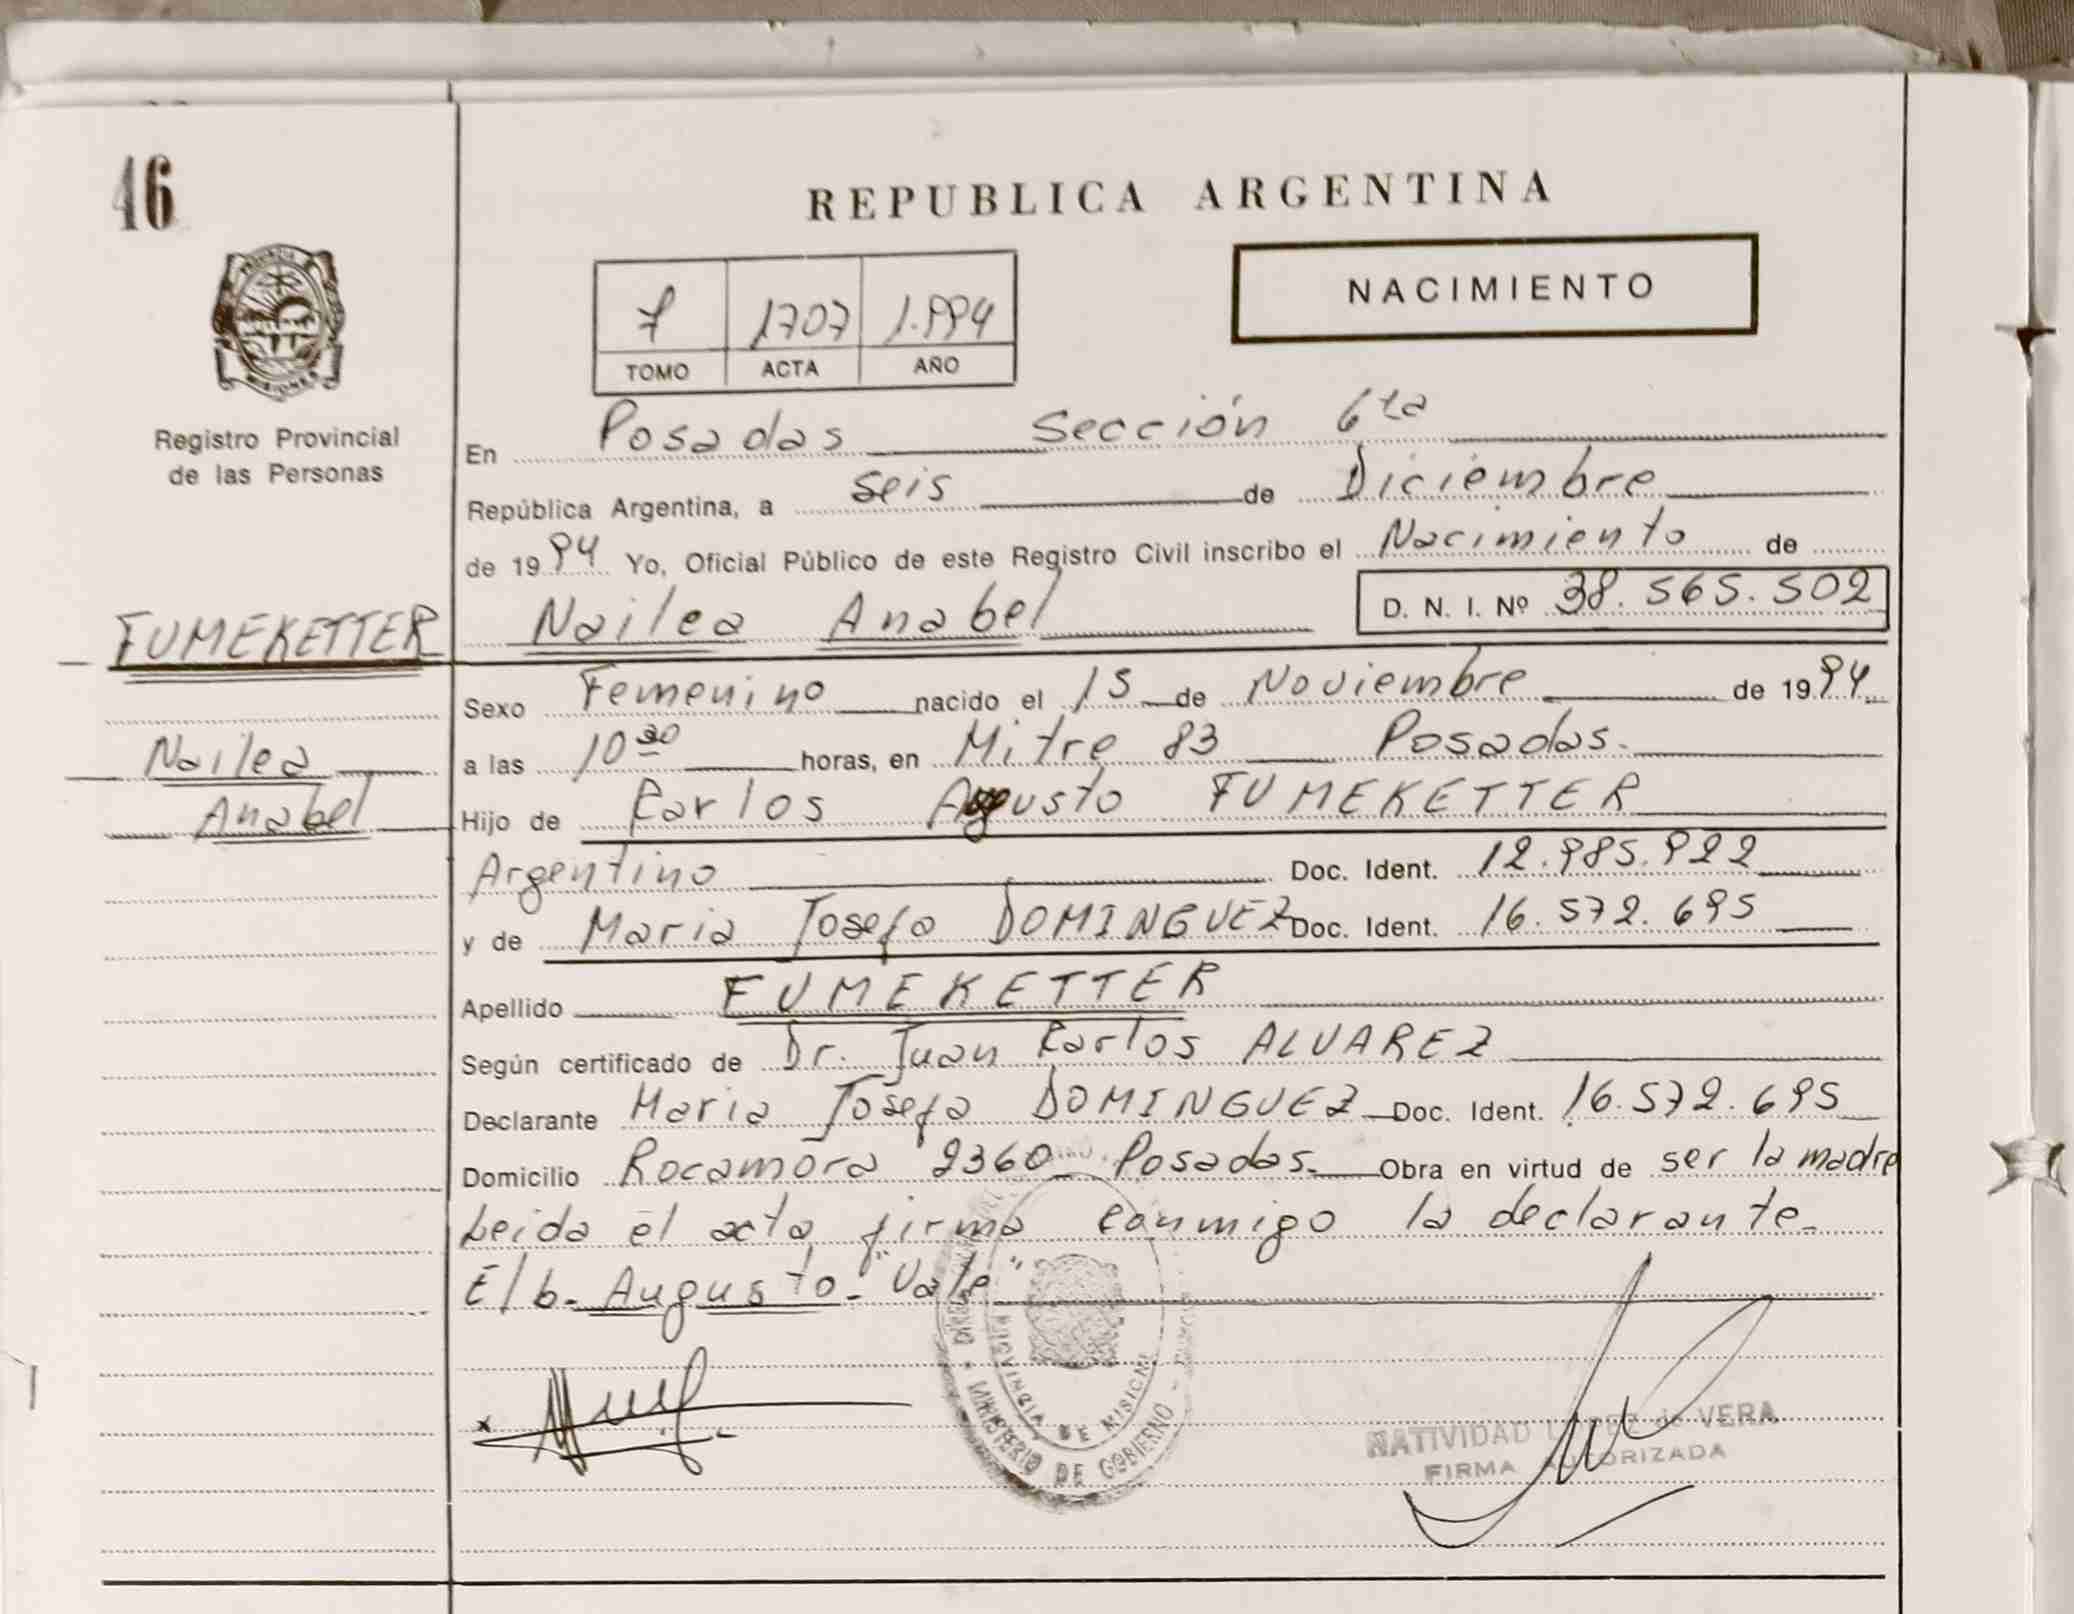 46
REPUBLICA ARGENTINA
NACIMIENTO
7 1707 1.994
TOMO ACTA AÑO
PROVINCIA
MISIONES
Registro Provincial
de las Personas
En Posadas Sección 6ta
República Argentina, a seis de Diciembre
de 1994 Yo, Oficial Público de este Registro Civil inscribo el Nacimiento de
FUMEKETTER
Nailea Anabel D. N. I. Nº 38.565.502
Sexo Femenino nacido el 15 de Noviembre de 1994
Nailea
Anabel
a las 10 30 horas, en Mitre 83 Posadas.
Hijo de Carlos Augusto FUMEKETTER
Argentino Doc. Ident. 12.985.922
y de Maria Josefa DOMINGUEZ Doc. Ident. 16.572.695
Apellido FUMEKETTER
Según certificado de Dr. Juan Carlos ALVAREZ
Declarante Maria Josefa DOMINGUEZ Doc. Ident. 16.572.695
Domicilio Rocamora 2360 Posadas. Obra en virtud de ser la madre
Leida el acta firma conmigo la declarante.
E/b. Augusto. "Vale"
PROVINCIA DE MISIONES
MINISTERIO DE GOBIERNO
NATIVIDAD LOPEZ de VERA
FIRMA AUTORIZADA